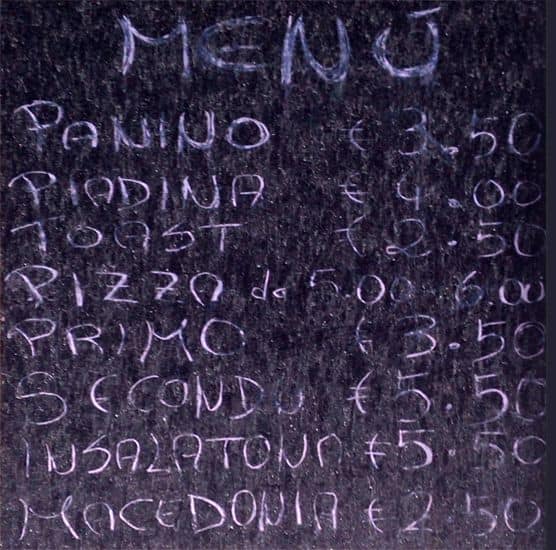 MENÚ
PANINO € 3.50
PIADINA € 4.00
TOAST € 2.50
PIZZA da 5.00 - 6.00
PRIMO € 3.50
SECONDO € 5.50
INSALATONA € 5.50
MACEDONIA € 2.50